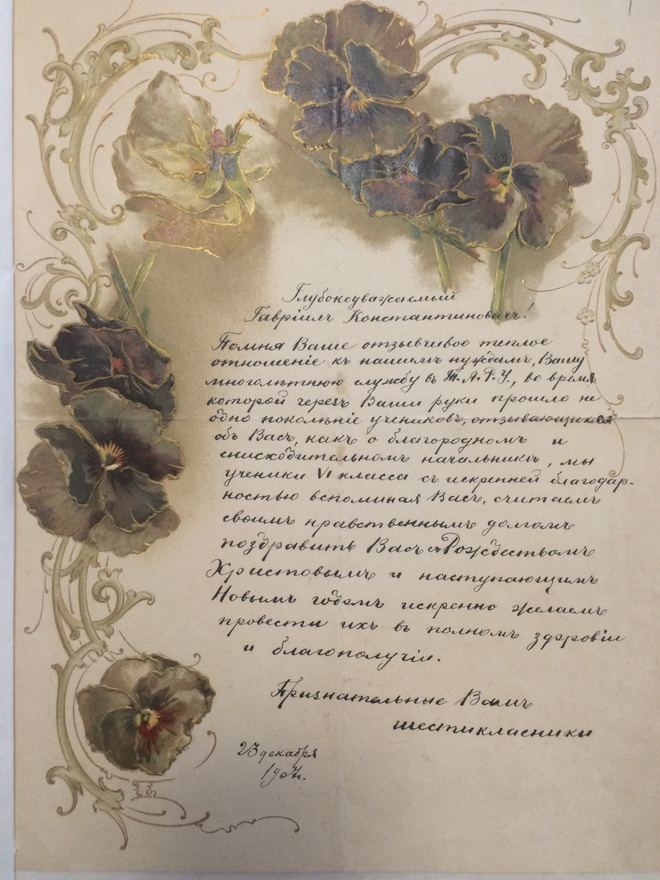 Глубокоуважаемый
Гавріилъ Константиновичъ!
Помня Ваше отзывчивое теплое
отношеніе къ нашимъ нуждамъ, Вашу
многолѣтнюю службу въ Т.А.Р.У., во время
которой черезъ Ваши руки прошло не
одно поколѣніе учениковъ, отзывающихся
объ Васъ, какъ о благородномъ и
снисходительномъ начальникѣ, мы
ученики VI класса съ искренней благодар-
ностью вспоминая Васъ, считаемъ
своимъ нравственнымъ долгомъ
поздравить Васъ съ Рождествомъ
Христовымъ и наступающимъ
Новымъ годомъ искренно желаемъ
провести ихъ въ полномъ здоровіи
и благополучіи.
Признательные Вамъ
шестикласники
23 декабря